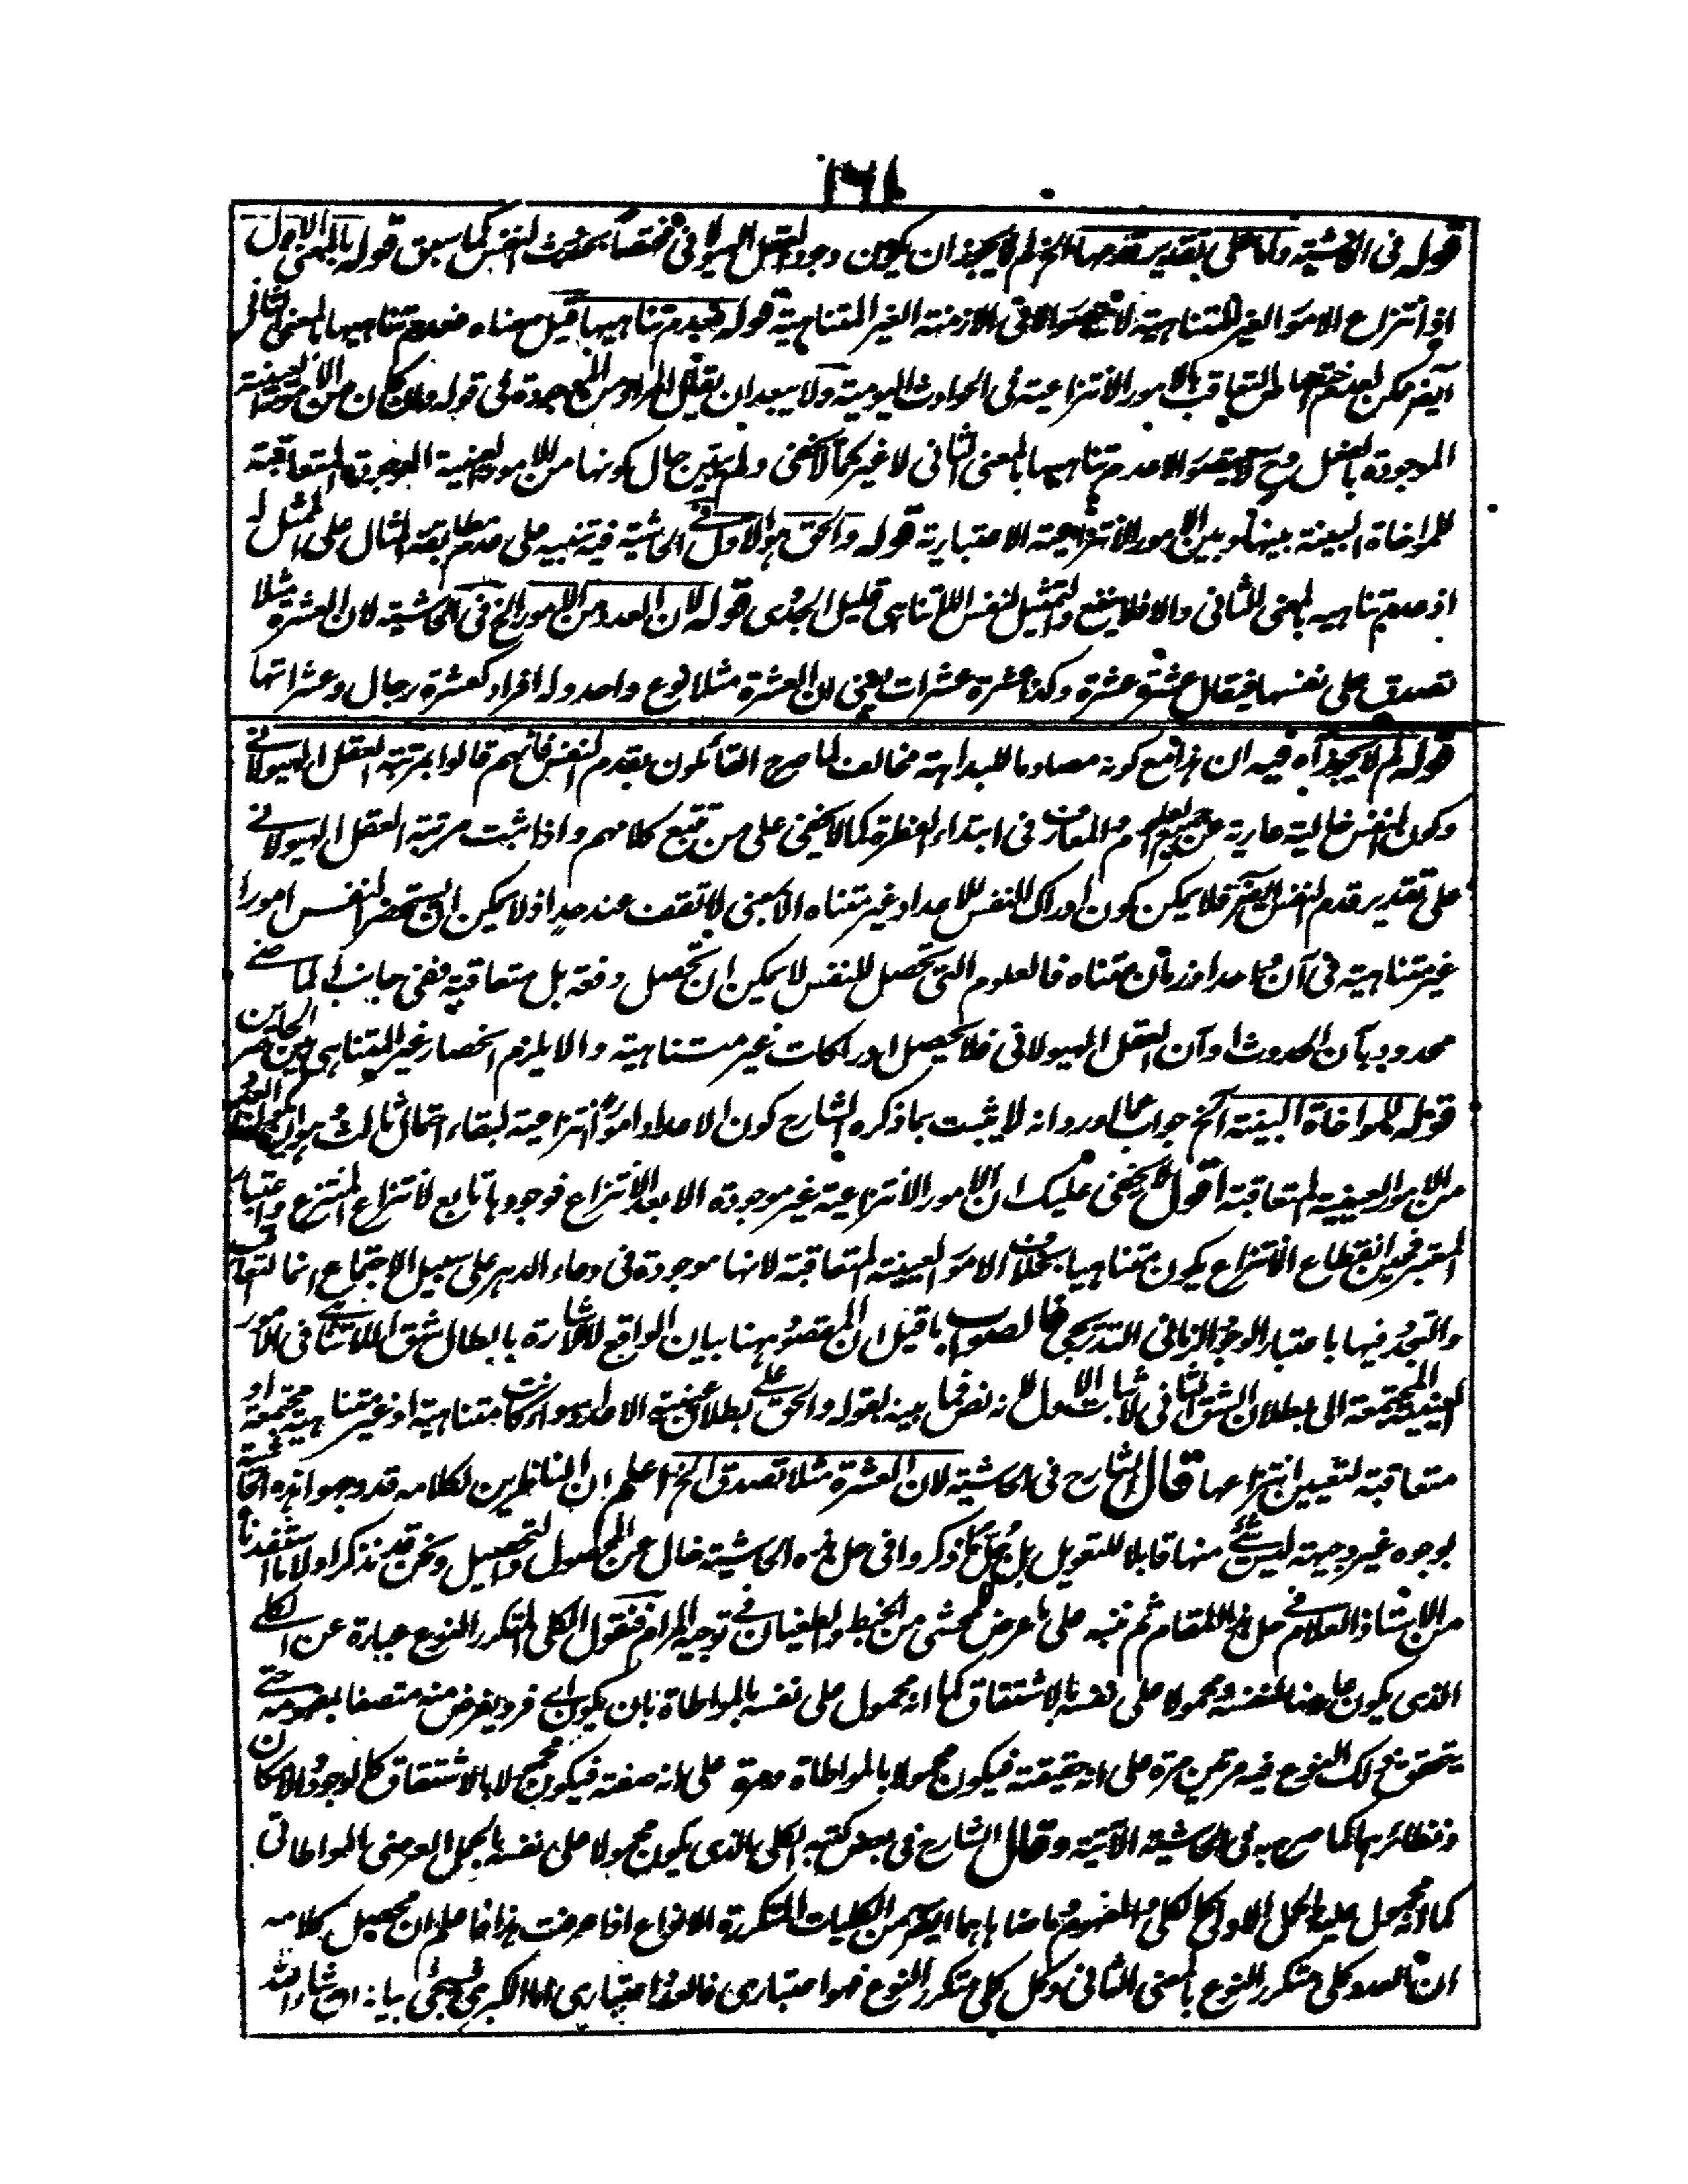 ١٦١
قوله في الحاشية واما على تقدير قدمها الخ لم لا يجوز ان يكون وجود العقل الهيولاني مختصا بحدوث النفس كما سبق قوله بالمعنى الاول
اذ انتزاع الامور الغير المتناهية لا يتصور الا في الازمنة الغير المتناهية قوله فعدم تناهيها قيل معناه فعدم تناهيها بالمعنى الثاني
المتعاقب بالامور الانتزاعية في الحوادث اليومية ولا يبعد ان يقال المراد من الموجودة في قوله وان كان من الامور العينية
الموجودة بالفعل وح لا يتصور الا عدم تناهيها بالمعنى الثاني لا غير كما لا يخفى ولم يبين حال كونها من الامور العينية الموجودة المتعاقبة
للمواخاة البينة بينها وبين الامور الانتزاعية الاعتبارية قوله والحق هو الاول في الحاشية فيه تنبيه على عدم مطابقة المثال على الممثل له
اذ عدم تناهيه بالمعنى الثاني والا فلا ينفع والتمثيل لنفس اللاتناهي قليل الجدوى قوله لان العدد من الامور الخ في الحاشية لان العشرة مثلا
تصدق على نفسها فيقال عشرة عشرة وكذا عشرة عشرات يعني ان العشرة مثلا نوع واحد وله افراد كعشرة رجال وعشراتها
قوله لم لا يجوز آه فيه ان هذا مع كونه مصادما للبداهة مخالف لما صرح القائلون بقدم النفس فانهم قالوا بمرتبة العقل الهيولاني
وكون النفس خالية عارية عن جميع العلوم والمعارف في ابتداء الفطرة كما لا يخفى على من تتبع كلامهم واذا ثبت مرتبة العقل الهيولاني
على تقدير قدم النفس ايضا فلا يمكن كون ادراك النفس للاعداد غير متناه الا بمعنى لا تقف عند حد اذ لا يمكن ان يستحضر النفس امورا
غير متناهية في آن واحد او زمان متناه فالعلوم التي تحصل للنفس لا يمكن ان تحصل دفعة بل متعاقبة ففي جانب الماضي
محدود بآن الحدوث او آن العقل الهيولاني فلا يحصل ادراكات غير متناهية والا يلزم انحصار غير المتناهي بين الحاصرين
قوله للمواخاة البينة الخ جواب عما اورد انه لا يثبت بما ذكره الشارح كون الاعداد امورا انتزاعية لبقاء احتمال ثالث هو ان يكون العدد
من الامور العينية المتعاقبة اقول لا يخفى عليك ان الامور الانتزاعية غير موجودة الا بعد الانتزاع فوجودها تابع لانتزاع المنتزع واعتبار
المعتبر فحين انقطاع الانتزاع يكون متناهيا بخلاف الامور العينية المتعاقبة لانها موجودة في وعاء الدهر على سبيل الاجتماع انما التعاقب
والتجدد فيها باعتبار الوجود الزماني التدريجي فالصواب ما قيل ان المقصود ههنا بيان الواقع للاشارة بابطال شق اللاتناهي في الامور
العينية المجتمعة الى بطلان الشق الثاني لاثبات الاول لانه نص فيما بينه بقوله والحق على بطلان عينية الاعداد سواء كانت متناهية او غير متناهية مجتمعة او
متعاقبة لتعيين انتزاعها قال الشارح في الحاشية لان العشرة مثلا تصدق الخ اعلم ان الناظرين لكلامه قد وجهوا هذه الحاشية
بوجوه غير وجيهة ليس شئ منها قابلا للتعويل بل جل ما ذكروا في حل هذه الحاشية خال عن المحصول والتحصيل ونحن قد نذكر اولا ما استفدنا
من الاستاذ العلام في حل هذا المقام ثم ننبه على ما عرض للمحشي من الخبط والطغيان في توجيه المرام فنقول الكلي المتكرر النوع عبارة عن الكلي
الذي يكون عارضا لنفسه ومحمولا على نفسه بالاشتقاق كما انه محمول على نفسه بالمواطاة بان يكون اي فرد يفرض منه متصفا بمفهومه حتى
يتحقق ذلك النوع فيه مرتين مرة على انه حقيقته فيكون محمولا بالمواطاة ومرة على انه صفته فيكون محمولا بالاشتقاق كالوجود والامكان
ونظائرهما كما صرح به في الحاشية الآتية وقال الشارح في بعض كتبه الكلي الذي يكون محمولا على نفسه بالحمل العرضي المواطاتي
كما انه محمول عليه بالحمل الاولي كالكلي والمفهوم وما ضاهاهما ايضا من الكليات المتكررة الانواع اذا عرفت هذا فاعلم ان محصل كلامه
ان العدد كلي متكرر النوع بالمعنى الثاني وكل كلي متكرر النوع فهو اعتباري فالعدد اعتباري اما الكبرى فسيجئ بيانه ان شاء الله